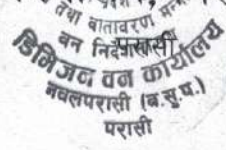 तथा वातावरण
वन निर्देशनालय
डिभिजन वन कार्यालय
नवलपरासी (ब.सु.प.)
परासी
परासी